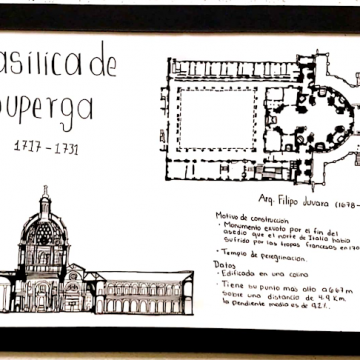 asílica de
uperga
1717 - 1731
Arq. Filipo Juvara (1678-
Motivo de construcción
• Monumento exvoto por el fin del
asedio que el norte de Italia había
sufrido por las tropas francesas en 170
• Templo de peregrinación.
Datos
• Edificada en una colina
• Tiene su punto más alto a 667 m
sobre una distancia de 4.9 Km
la pendiente media es de 9.2%.